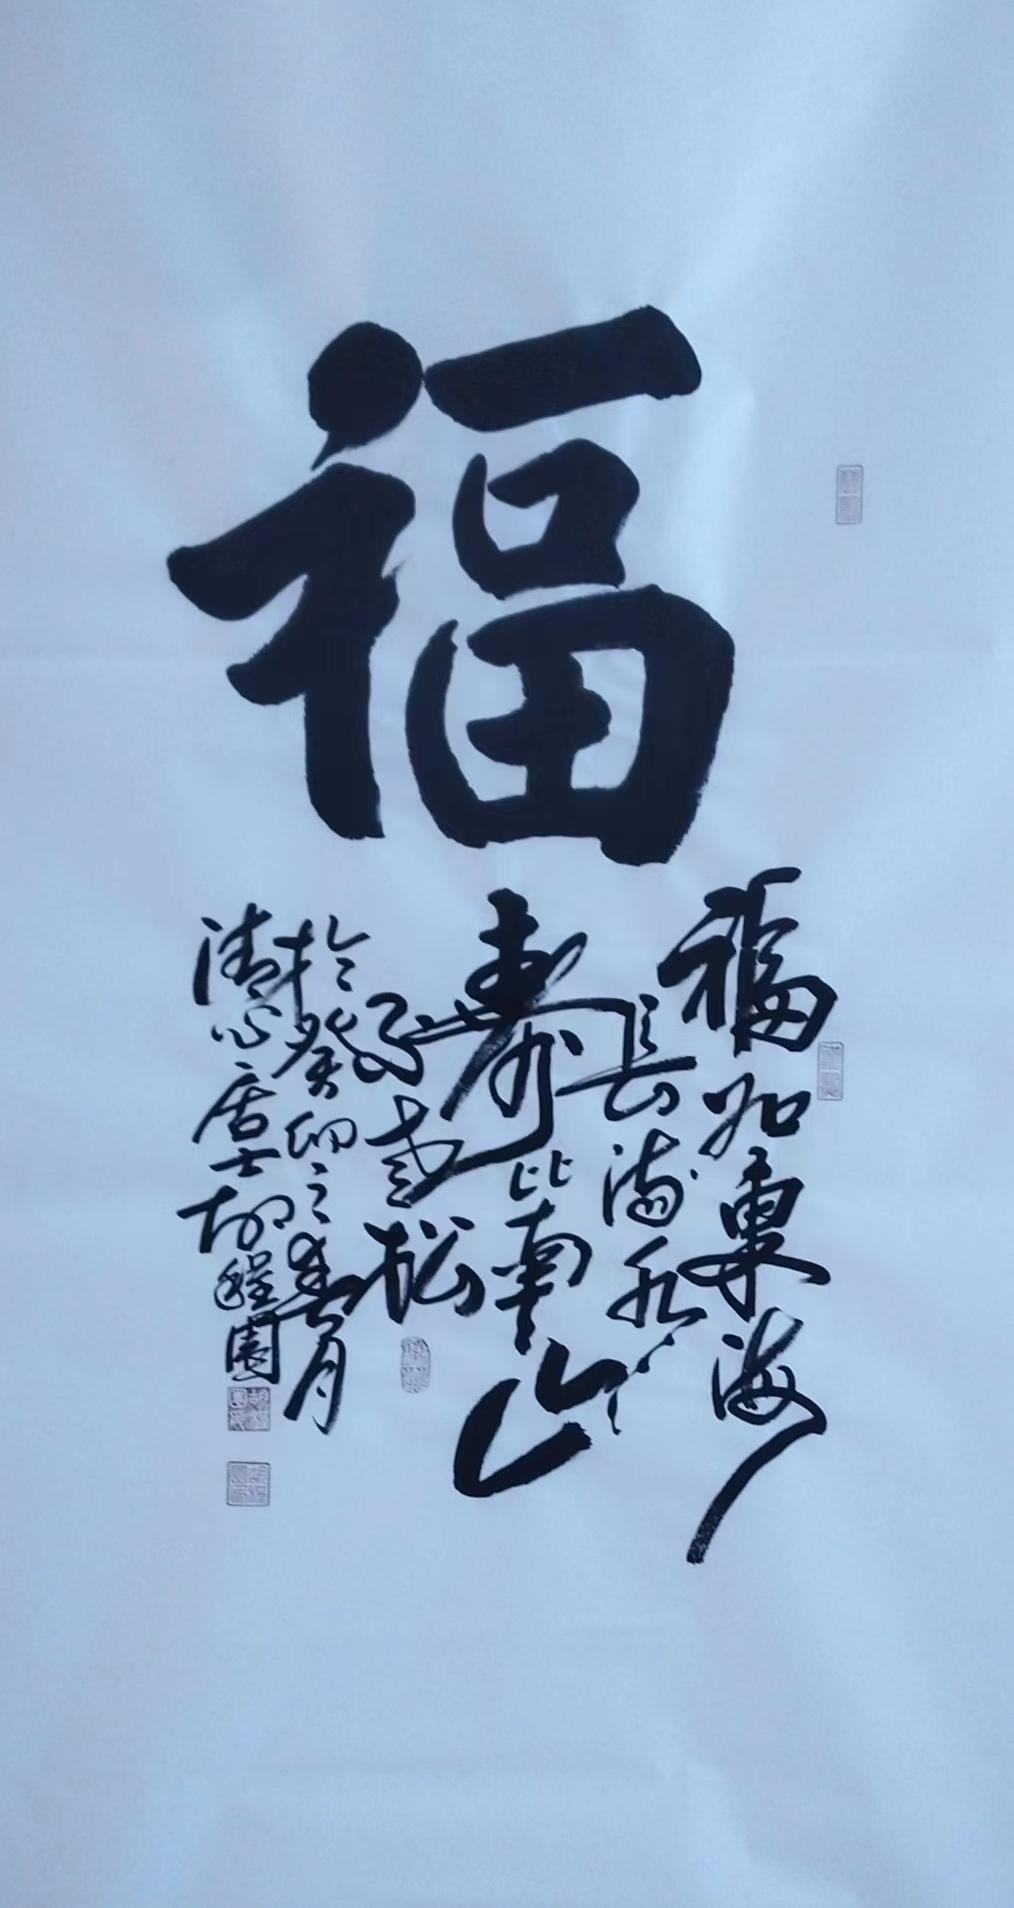 福
福如東海
長流水
壽比南山
不老松
於癸卯之春月
清心居士胡醒園